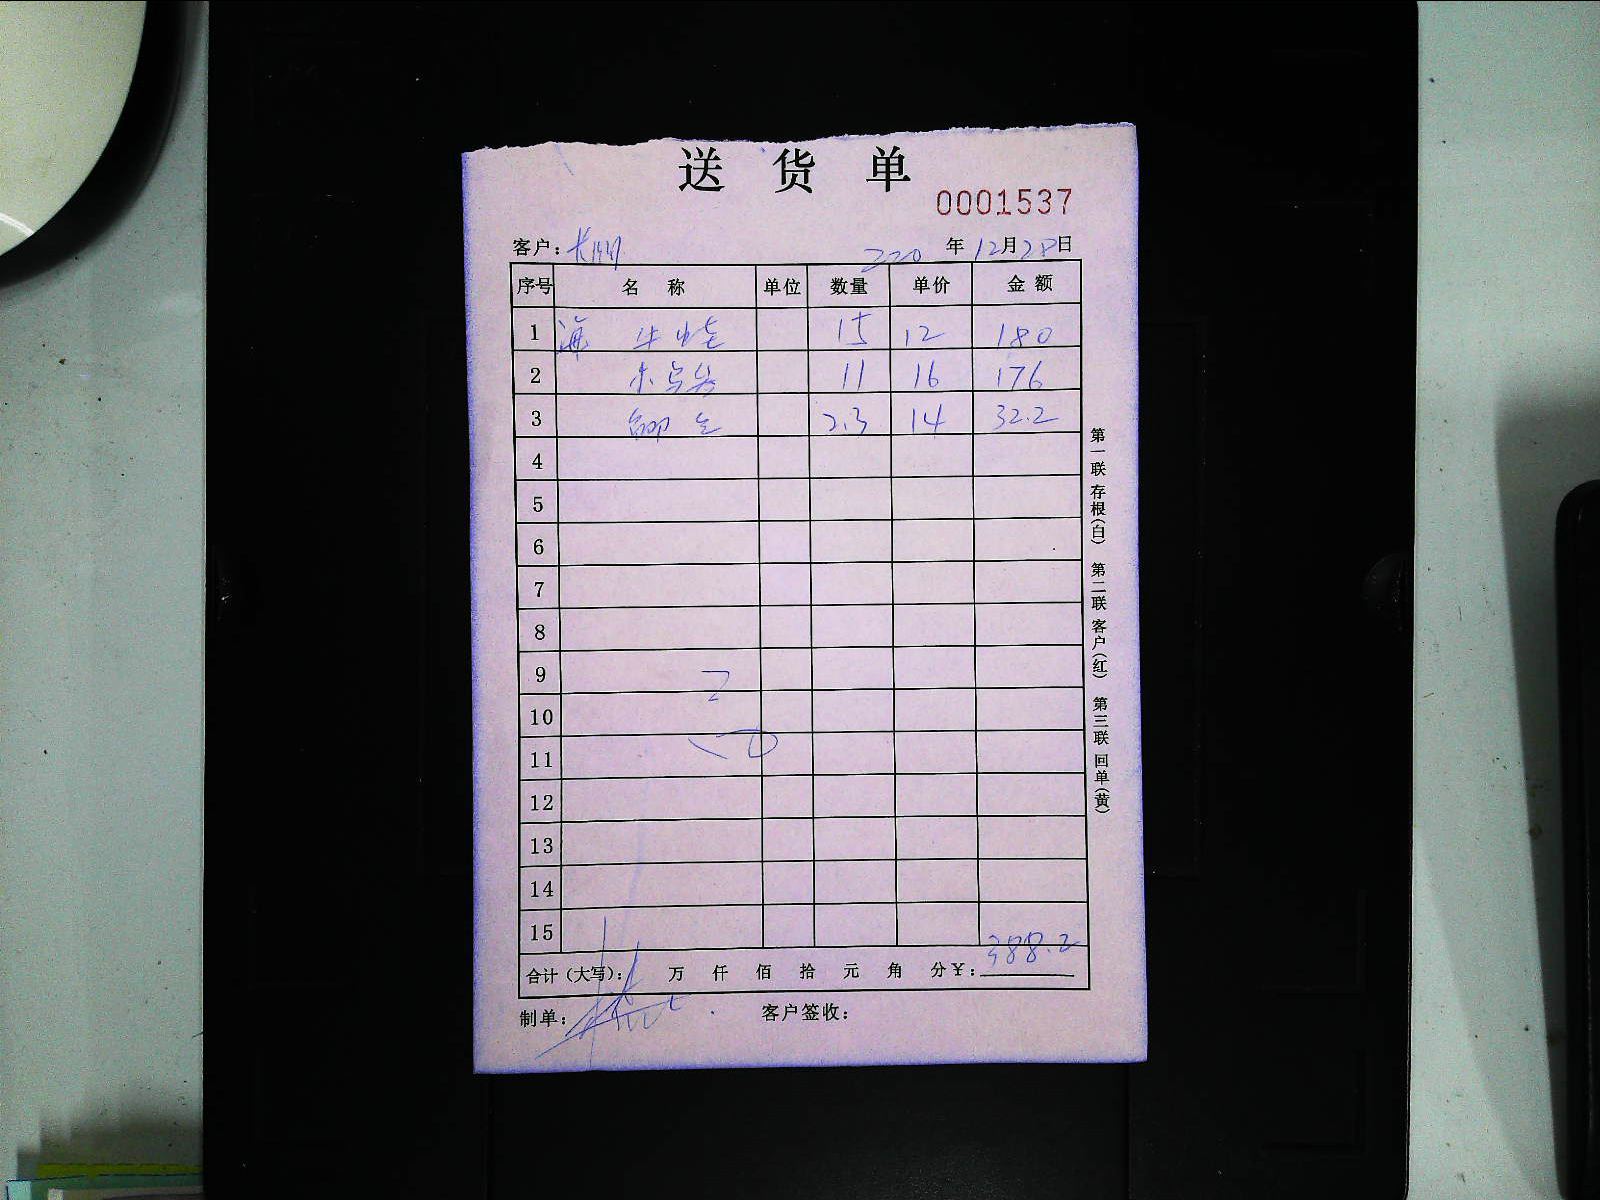 送货单
0001537
客户： 220 年 12 月 28 日
序号 名称 单位 数量 单价 金额
1 海 15 12 180
2 11 16 176
3 2.3 14 32.2
4
5
6
7
8
9
10
11
12
13
14
15
合计（大写）： 万 仟 佰 拾 元 角 分 ¥：388.2
制单： 客户签收：
第一联 存根（白） 第二联 客户（红） 第三联 回单（黄）